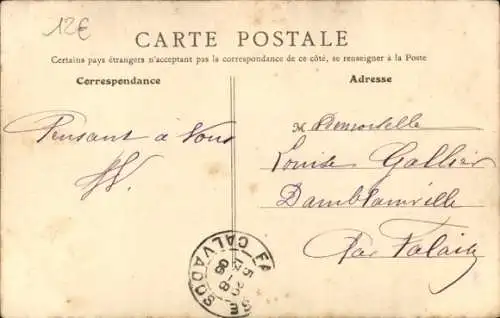 12€
CARTE POSTALE
Certains pays étrangers n'acceptent pas la correspondance de ce côté, se renseigner à la Poste
Correspondance
Adresse
Pensant à Vous
M Demoiselle
Louise Gallier
Damblainville
Par Falaise
CALVADOS